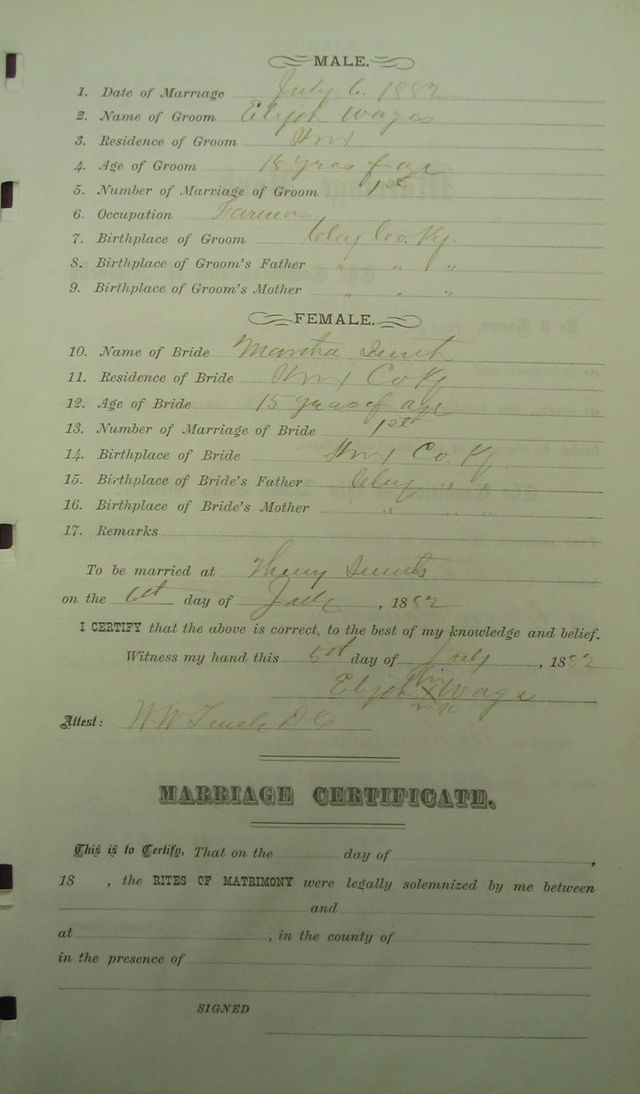 MALE.
1. Date of Marriage July 6. 1882
2. Name of Groom Elijah Wages
3. Residence of Groom
4. Age of Groom 18 years of age
5. Number of Marriage of Groom 1st
6. Occupation Farmer
7. Birthplace of Groom Clay Co. Ky.
8. Birthplace of Groom's Father " " "
9. Birthplace of Groom's Mother " " "
FEMALE.
10. Name of Bride Martha
11. Residence of Bride Co Ky
12. Age of Bride 15 years of age
13. Number of Marriage of Bride 1st
14. Birthplace of Bride Co. Ky
15. Birthplace of Bride's Father Clay " "
16. Birthplace of Bride's Mother " " "
17. Remarks
To be married at
on the 6th day of July, 1882
I CERTIFY that the above is correct, to the best of my knowledge and belief.
Witness my hand this day of July, 1882
his
Elijah X Wages
mark
Attest: W. W. D C
MARRIAGE CERTIFICATE.
This is to Certify, That on the day of ,
18 , the RITES OF MATRIMONY were legally solemnized by me between
and
at , in the county of
in the presence of
SIGNED